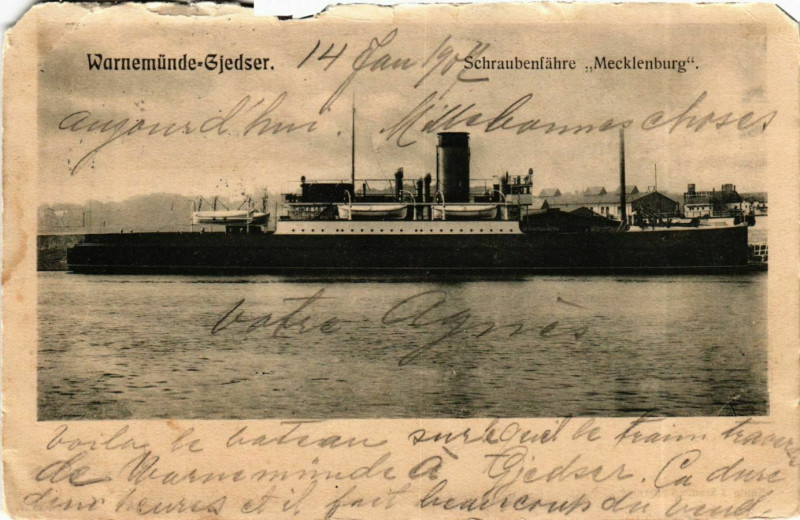 Warnemünde-Gjedser.
14 Jan 1907
Schraubenfähre „Mecklenburg".
aujourd'hui. Mille bonnes choses
votre Agnès
Voila le bateau sur lequel le train traverse
de Warnemünde à Gjedser. Ca dure
deux heures et il fait beaucoup du vend.